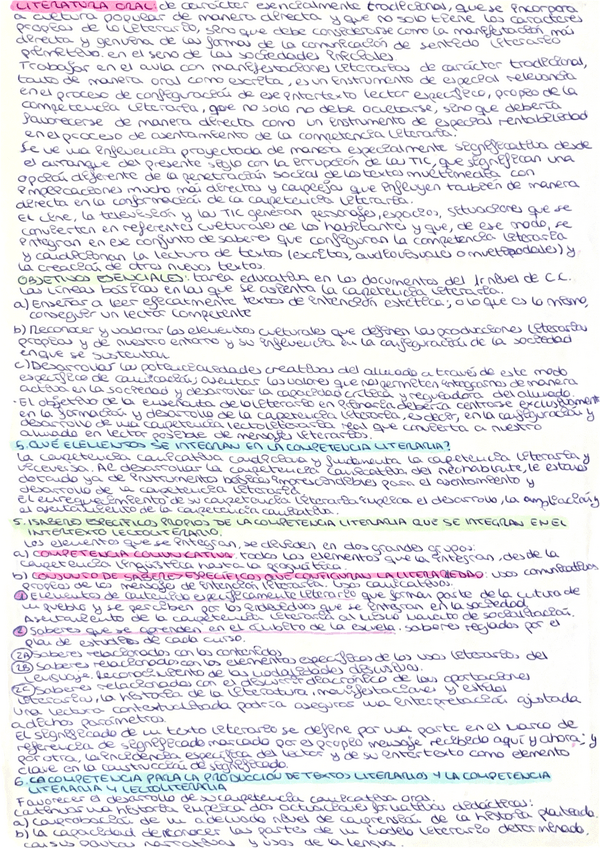 LITERATURA ORAL: de carácter esencialmente tradicional, que se incorpora
a cultura popular de manera directa y que no solo tiene los caracteres
propios de lo literario, sino que debe considerarse como la manifestación más
directa y genuina de las formas de la comunicación de sentido literario
primitivas en el seno de las sociedades iniciales
Trabajar en el aula con manifestaciones literarias de carácter tradicional,
tanto de manera oral como escrita, es un instrumento de especial relevancia
en el proceso de configuración de ese intertexto lector específico, propio de la
competencia literaria, que no solo no debe ocultarse, sino que debería
favorecerse de manera directa como un instrumento de especial rentabilidad
en el proceso de asentamiento de la competencia literaria.
Se ve una influencia proyectada de manera especialmente significativa desde
el arranque del presente siglo con la irrupción de las TIC, que significan una
opción diferente de la penetración social de los textos multimedia con
implicaciones mucho más directas y complejas que influyen también de manera
directa en la conformación de la competencia literaria.
El cine, la televisión y las TIC generan personajes, espacios, situaciones que se
convierten en referentes culturales de los habitantes y que, de ese modo, se
integran en ese conjunto de saberes que configuran la competencia literaria
y condicionan la lectura de textos (escritos, audiovisuales o multimodales) y
la creación de otros nuevos textos.
OBJETIVOS ESENCIALES: tarea educativa en los documentos del 1r nivel de C.C.
Las líneas básicas en las que se asienta la competencia literaria.
a) Enseñar a leer eficazmente textos de intención estética; o lo que es lo mismo,
conseguir un lector competente
b) Reconocer y valorar los elementos culturales que definen las producciones literarias
propias y de nuestro entorno y su influencia en la configuración de la sociedad
en que se sustentan.
c) Desarrollar las potencialidades creativas del alumnado a través de este modo
específico de comunicación, asentar los valores que nos permiten integrarnos de manera
activa en la sociedad y desarrollar la capacidad crítica y reguladora del alumnado.
- El objetivo de la enseñanza de la literatura en Primaria debería centrarse exclusivamente
en la formación y desarrollo de la competencia literaria, es decir, en la configuración y
desarrollo de una competencia lectoliteraria real que convierta a nuestro
alumnado en lector posible de mensajes literarios.
5. QUÉ ELEMENTOS SE INTEGRAN EN LA COMPETENCIA LITERARIA?
La competencia comunicativa condiciona y fundamenta la competencia literaria y
viceversa. Al desarrollar la competencia comunicativa del neohablante, le estamos
dotando ya de instrumentos básicos imprescindibles para el asentamiento y
desarrollo de la competencia literaria
el enriquecimiento de su competencia literaria implica el desarrollo, la ampliación y
el asentamiento de la competencia comunicativa.
5.1 SABERES ESPECÍFICOS PROPIOS DE LA COMPETENCIA LITERARIA QUE SE INTEGRAN EN EL
INTERTEXTO LECTOLITERARIO.
Los elementos que se integran, se dividen en dos grandes grupos:
a) COMPETENCIA COMUNICATIVA: todos los elementos que la integran, desde la
competencia lingüística hasta la pragmática.
b) CONJUNTO DE SABERES ESPECÍFICOS QUE CONFIGURAN LA LITERARIEDAD: usos comunicativos
propios de los mensajes de intención literaria. Usos comunicativos.
1 Elementos de contenido específicamente literario que forman parte de la cultura de
un pueblo y se perciben por los individuos que se integran en la sociedad.
Asentamiento de la competencia literaria al mismo tiempo de socialización.
2 Saberes que se aprenden en el ámbito de la escuela: saberes reglados por el
plan de estudios de cada curso.
2A Saberes relacionados con los contenidos
2B Saberes relacionados con los elementos específicos de los usos literarios, del
lenguaje. Reconocimiento de las modalidades discursivas.
2C Saberes relacionados con el desarrollo diacrónico de las aportaciones
literarias, la historia de la literatura, manifestaciones y estilos
Una lectura contextualizada podría asegurar una interpretación ajustada
a dichos parámetros.
El significado de un texto literario se define por una parte en el marco de
referencia de significado marcado por el propio mensaje recibido aquí y ahora; y
por otra, la incidencia específica del lector y de su intertexto como elemento
clave en la construcción de significado.
6. LA COMPETENCIA PARA LA PRODUCCIÓN DE TEXTOS LITERARIOS Y LA COMPETENCIA
LITERARIA Y LECTOLITERARIA
Favorecer el desarrollo de su competencia comunicativa oral.
Contar una historia implica dos actuaciones formativas didácticas:
a) comprobación de un adecuado nivel de comprensión de la historia planteada.
b) la capacidad de reconocer las partes de un modelo literario determinado,
con sus pautas narrativas y usos de la lengua.